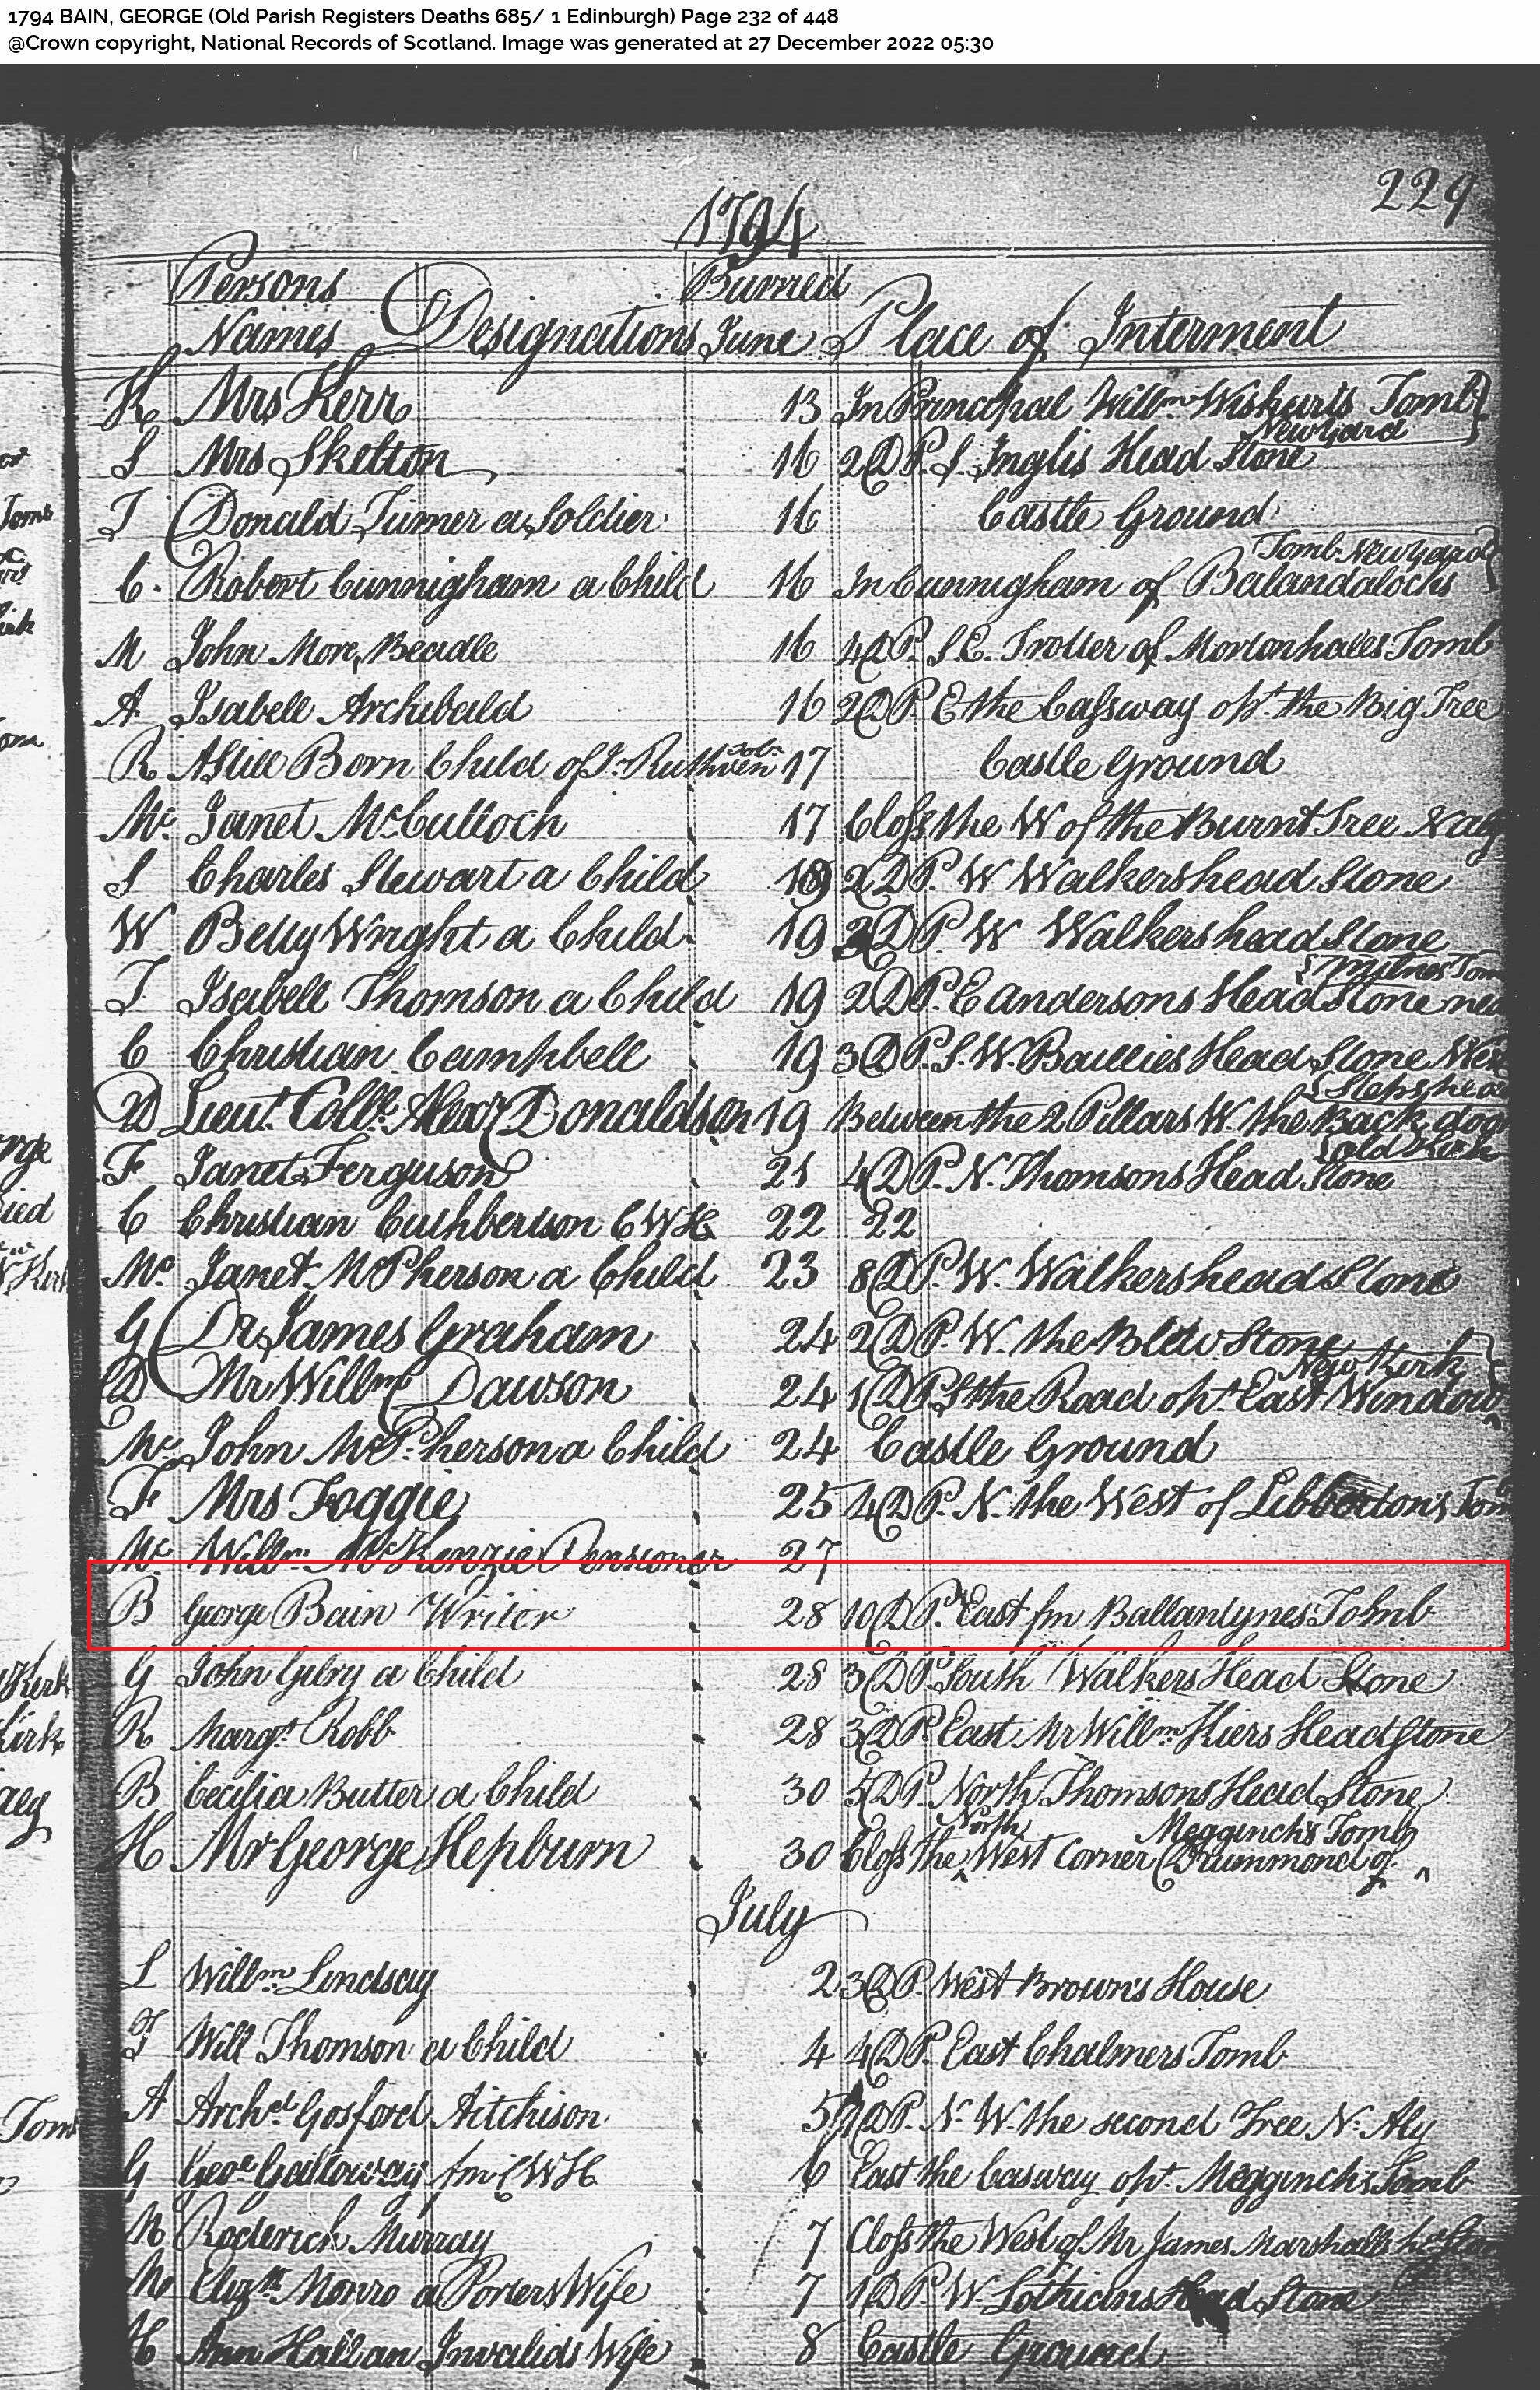 1794 BAIN, GEORGE (Old Parish Registers Deaths 685/ 1 Edinburgh) Page 232 of 448
@Crown copyright, National Records of Scotland. Image was generated at 27 December 2022 05:30
229
1794
Persons Burried
Names Designations June Place of Interment
K Mrs Kerr 13 In Principal Willm Wisharts Tomb
New Yard
S Mrs Skelton 16 2 D P. S. Inglis Head Stone
T Donald Turner a Soldier 16 Castle Ground
Tomb New Yard
C. Robert Cunnigham a Child 16 In Cunnigham of Balandalochs
M John More, Beadle 16 4 D P. S. E. Trotter of Mortonhalls Tomb
A Isabell Archibald 16 2 D P. E the Cassway opt. the Big Tree
Sol.
R A Still Born Child of Jn. Ruthven 17 Castle Ground
Mc Janet McCulloch 17 Closs the W of the Burnt Tree
S Charles Stewart a Child 19 2 D P. W Walkers head Stone
W Betty Wright a Child 19 3 D P. W Walkers head Stone
Milnes Tom
T Isabell Thomson a Child 19 2 D P. E andersons Head Stone nea
C Christian Campbell 19 3 D P. S. W. Baillies Head Stone
Steps hea
D Lieut. Coll. Alexr Donaldson 19 Between the 2 Pillars W. the Back door
old Kirk
F Janet Ferguson 21 4 D P. N. Thomsons Head Stone
C Christian Cuthbertson C W H 22 22
Mc Janet McPherson a Child 23 8 D P. W. Walkers head Stone
G Dr. James Graham 24 2 D P. W. the Blew Stone
New Kirk
D Mr Willm Dawson 24 1 D P. S the Road opt. East Window
Mc John McPherson a Child 24 Castle Ground
F Mrs Foggie 25 4 D P. N. the West of Libberton's Tom
Mc Willm McKenzie Pensioner 27
B George Bain Writer 28 10 D P. East fm Ballantynes Tomb
G John Gilry a Child 28 3 D P. South Walkers Head Stone
R Margt. Robb 28 3 D P. East Mr Willm Kiers Head Stone
B Cecilia Butter a Child 30 5 D P. North Thomsons Head Stone
North Megginch's Tomb
H Mr George Hepburn 30 Closs the West Corner Drummond of
July
L Willm Lindsay 2 3 D P. West Brown's House
T Will Thomson a Child 4 4 D P. East Chalmers Tomb
A Archd. Gosford Aitchison 5 D P. N. W. the second Tree N. Aly
G Geoe Galloway fm C W H 6 East the Casway opt. Megginch's Tomb
M Roderich Murray 7 Closs the West of Mr James Marshalls
M Elizth Monro a Porters Wife 7 1 D P. W. Lothians Head Stone
H Ann Hallan Invalids Wife 8 Castle Ground